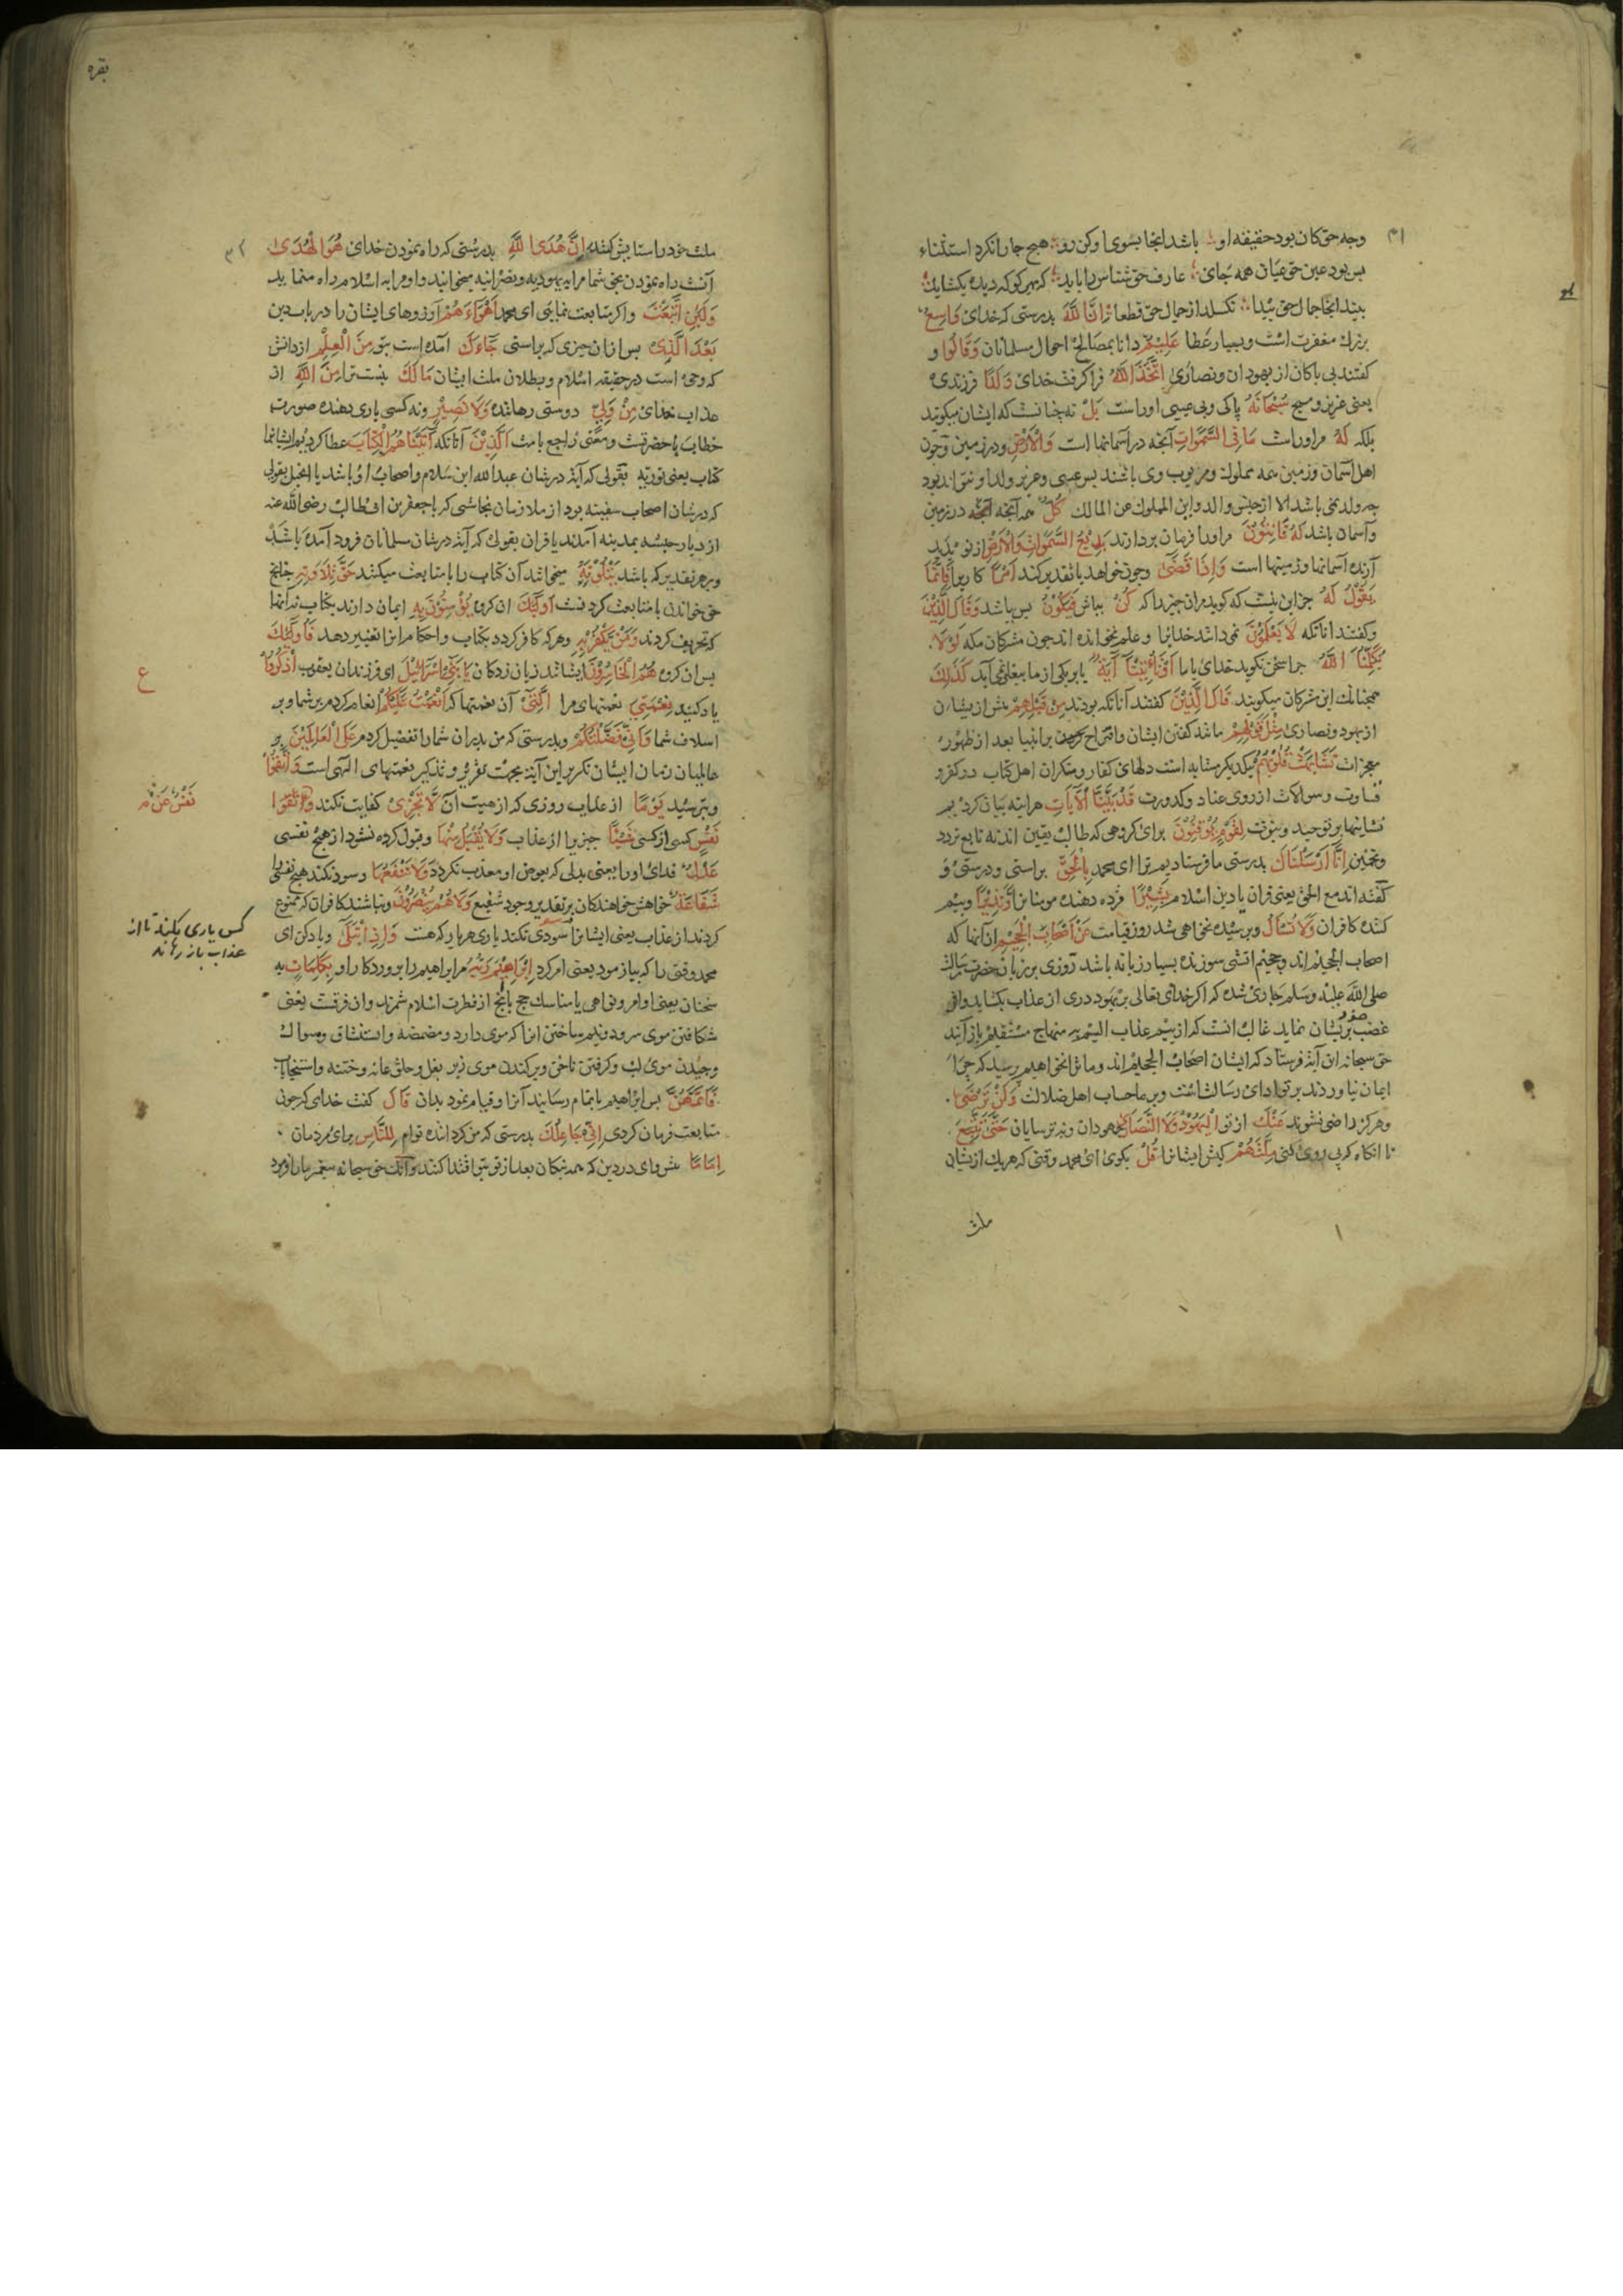 وجه حق کان بود حقیقه او باشد انجا بسوی او کن رو هیچ جا را نکرد استثناء
پس بود عین حق عیان همه جای عارف حق شناس را باید که بهر سو که دیده بکشاید
بیند انجا جمال حق پیدا نکسلد از جمال حق قطعا اِنَّ اللّٰهَ بدرستی که خدای وَاسِعٌ
بزرك مغفرت است و بسیار عطا عَلِيْمٌ دانا بمصالح احوال مسلمانان وَقَالُوا و
کفتند بی باکان از یهودان و نصاری اتَّخَذَ اللّٰهُ فرا کرفت خدای وَلَدًا فرزندی
یعنی عزیز و مسیح سُبْحَانَهُ پاکی و بی عیبی اوراست بَلْ نه چنانست که ایشان میکویند
بلکه لَهُ مر اوراست مَا فِی السَّمٰوَاتِ آنچه در آسمانها است وَالْاَرْضِ و در زمین و چون
اهل آسمان و زمین همه مملوك و مربوب وی باشند پس عیسی و عزیر ولد او نتوانند بود
چه ولد نمی باشد الا از جنس والد و این المملوك من المالك كُلٌّ همه آنچه در زمین
و آسمان باشد لَهُ قَانِتُوْنَ مر اورا فرمان بردارند بَدِيْعُ السَّمٰوَاتِ وَالْاَرْضِ از نو پدید
آرنده آسمانها و زمینها است وَاِذَا قَضٰى و چون خواهد یا تقدیر کند اَمْرًا کاریرا فَاِنَّمَا
يَقُوْلُ لَهُ جز این نیست که کوید مر ان چیز را که كُنْ بباش فَيَكُوْنُ پس بباشد وَقَالَ الَّذِيْنَ
و کفتند آنانکه لَا يَعْلَمُوْنَ نمی دانند خدایرا و علم نخوانده اند چون مشرکان مکه لَوْلَا
يُكَلِّمُنَا اللّٰهُ چرا سخن نکوید خدای با ما اَوْ تَأْتِيْنَا آيَةٌ یا بر یکی از ما پیغامی آید كَذٰلِكَ
همچنانك این مشرکان میکویند قَالَ الَّذِيْنَ کفتند آنانکه بودند مِنْ قَبْلِهِمْ پیش از ایشان
از یهود و نصاری مِثْلَ قَوْلِهِمْ مانند کفتن ایشان و اقتراح بر انبیا بعد از ظهور
معجزات تَشَابَهَتْ قُلُوْبُهُمْ بیکدیکر مشابه است دلهای کفار و منکران اهل کتاب در کفر و
قساوت و سوالات از روی عناد و کدورت قَدْ بَيَّنَّا الْآيَاتِ هر اینه بیان کردیم
نشانیها بر توحید و نبوت لِقَوْمٍ يُوْقِنُوْنَ برای کروهی که طالب یقین اند نه تابع تردد
و تخمین اِنَّا اَرْسَلْنَاكَ بدرستی ما فرستادیم ترا ای محمد بِالْحَقِّ براستی و درستی و
کفته اند مع الحق یعنی قران یا دین اسلام بَشِيْرًا مژده دهنده مومنانرا وَنَذِيْرًا و بیم
کننده کافران وَلَا تُسْئَلُ و پرسیده نخواهی شد روز قیامت عَنْ اَصْحَابِ الْجَحِيْمِ از آنها که
اصحاب الجحیم اند و جحیم اتشی سوزنده بسیار زبانه باشد روزی بر زبان حضرت رسالت
صلی اللّٰه علیه وسلم جاری شده که اکر خدای تعالی بر یهود دری از عذاب بکشاید و اثر
غضب خود بریشان نماید غالب انست که از بیم عذاب الیم بر منهاج مستقیم باز آیند
حق سبحانه این آیة فرستاد که ایشان اصحاب الجحیم اند و ما ترا نخواهیم پرسید که چرا
ایمان نیاوردند بر تو ادای رسالت است و بر ما حساب اهل ضلالت وَلَنْ تَرْضٰى
و هرکز راضی نشوند عَنْكَ از تو الْيَهُوْدُ وَلَا النَّصَارٰى جهودان و نه ترسایان حَتّٰى تَتَّبِعَ
تا انکاه که پی روی کنی مِلَّتَهُمْ کیش ایشانرا قُلْ بکوی ای محمد وقتی که هر یك از ایشان
ملت
بقره
ملت خود را ستایش کنند اِنَّ هُدَى اللّٰهِ بدرستی که راه نمودن خدای هُوَ الْهُدٰى
آنست راه نمودن بحق شما مرا به یهودیه و نصرانیه میخوانید و او مرا به اسلام راه مینماید
وَلَئِنِ اتَّبَعْتَ و اکر متابعت نمایی ای محمد اَهْوَاءَهُمْ آرزوهای ایشان را در باب دین
بَعْدَ الَّذِيْ پس از ان چیزی که براستی جَآءَكَ آمده است بتو مِنَ الْعِلْمِ از دانش
که وحی است در حقیقه اسلام و بطلان ملت ایشان مَا لَكَ نیست ترا مِنَ اللّٰهِ از
عذاب خدای مِنْ وَلِيٍّ دوستی رهاننده وَلَا نَصِيْرٍ و نه کسی یاری دهنده صورت
خطاب با حضرتست و معنی راجع بامت الَّذِيْنَ آنانکه آتَيْنَاهُمُ الْكِتَابَ عطا کردیم ایشانرا
کتاب یعنی توریه بقولی که آیة در شان عبدالله ابن سلام و اصحاب او باشد یا انجیل بقولی
که در شان اصحاب سفینه بود از ملازمان نجاشی که با جعفر بن ابی طالب رضی اللّٰه عنه
از دیار حبشه بمدینه آمدند یا قران بقولی که آیة در شان مسلمانان فرود آمده باشد
و بر هر تقدیر که باشد يَتْلُوْنَهُ میخوانند آن کتاب را یا متابعت میکنند حَقَّ تِلَاوَتِهِ چنانچ
حق خواندن یا متابعت کردنست اُولٰئِكَ ان کروه يُؤْمِنُوْنَ بِهِ ایمان دارند بکتاب نه آنها
که تحریف کردند وَمَنْ يَكْفُرْ بِهِ و هر که کافر کردد بکتاب و احکام انرا تغییر دهد فَاُولٰئِكَ
پس ان کروه هُمُ الْخَاسِرُوْنَ ایشانند زیان زدکان يَا بَنِيْ اِسْرَائِيْلَ ای فرزندان یعقوب اذْكُرُوْا
یاد کنید نِعْمَتِيَ نعمتهای مرا الَّتِيْ آن نعمتها که اَنْعَمْتُ عَلَيْكُمْ انعام کردم بر شما و بر
اسلاف شما وَاَنِّيْ فَضَّلْتُكُمْ و بدرستی که من پدران شما را تفضیل کردم عَلَى الْعَالَمِيْنَ بر
عالمیان زمان ایشان تکریر این آیة بجهت تقریر و تذکیر نعمتهای الهی است وَاتَّقُوْا
و بترسید يَوْمًا از عذاب روزی که از هیبت آن لَا تَجْزِيْ کفایت نکند
نَفْسٍ کسی از کسی شَيْئًا چیزیرا از عذاب وَلَا يُقْبَلُ مِنْهَا و قبول کرده نشود از هیچ نفسی
عَدْلٌ فدای اورا یعنی بدلی که بعوض او معذب نکردد وَلَا تَنْفَعُهَا و سود نکند هیچ نفسی را
شَفَاعَةٌ خواهش خواهندکان بر تقدیر وجود شفیع وَلَا هُمْ يُنْصَرُوْنَ و نباشند کافران که ممنوع
کردند از عذاب یعنی ایشانرا سودی نکند یاری هر یار که هست وَاِذِ ابْتَلٰى و یاد کن ای
محمد وقتی را که بیازمود یعنی امر کرد اِبْرَاهِيْمَ رَبُّهُ مر ابراهیم را پروردکار او بِكَلِمَاتٍ به
سخنان یعنی اوامر و نواهی یا مناسك حج یا انج از فطرت اسلام شمرند و ان فرقست یعنی
شکافتن موی سر و دو نیم ساختن انرا که موی دارد و مضمضه و استنشاق و سواك
و چیدن موی لب و کرفتن ناخن و برکندن موی زیر بغل و حلق عانه و ختنه و استنجا باب
فَاَتَمَّهُنَّ پس ابراهیم باتمام رسانید آنرا و قیام نمود بدان قَالَ کفت خدای که چون
متابعت فرمان کردی اِنِّيْ جَاعِلُكَ بدرستی که من کرداننده توام لِلنَّاسِ برای مردمان
اِمَامًا پیشوای در دین که همه نیکان بعد از تو بتو اقتدا کنند و آنك حق سبحانه پیغمبر ما را فرمود
ع
نَفْسٌ عَنْ
کس یاری نکنند تا از
عذاب باز رهاند